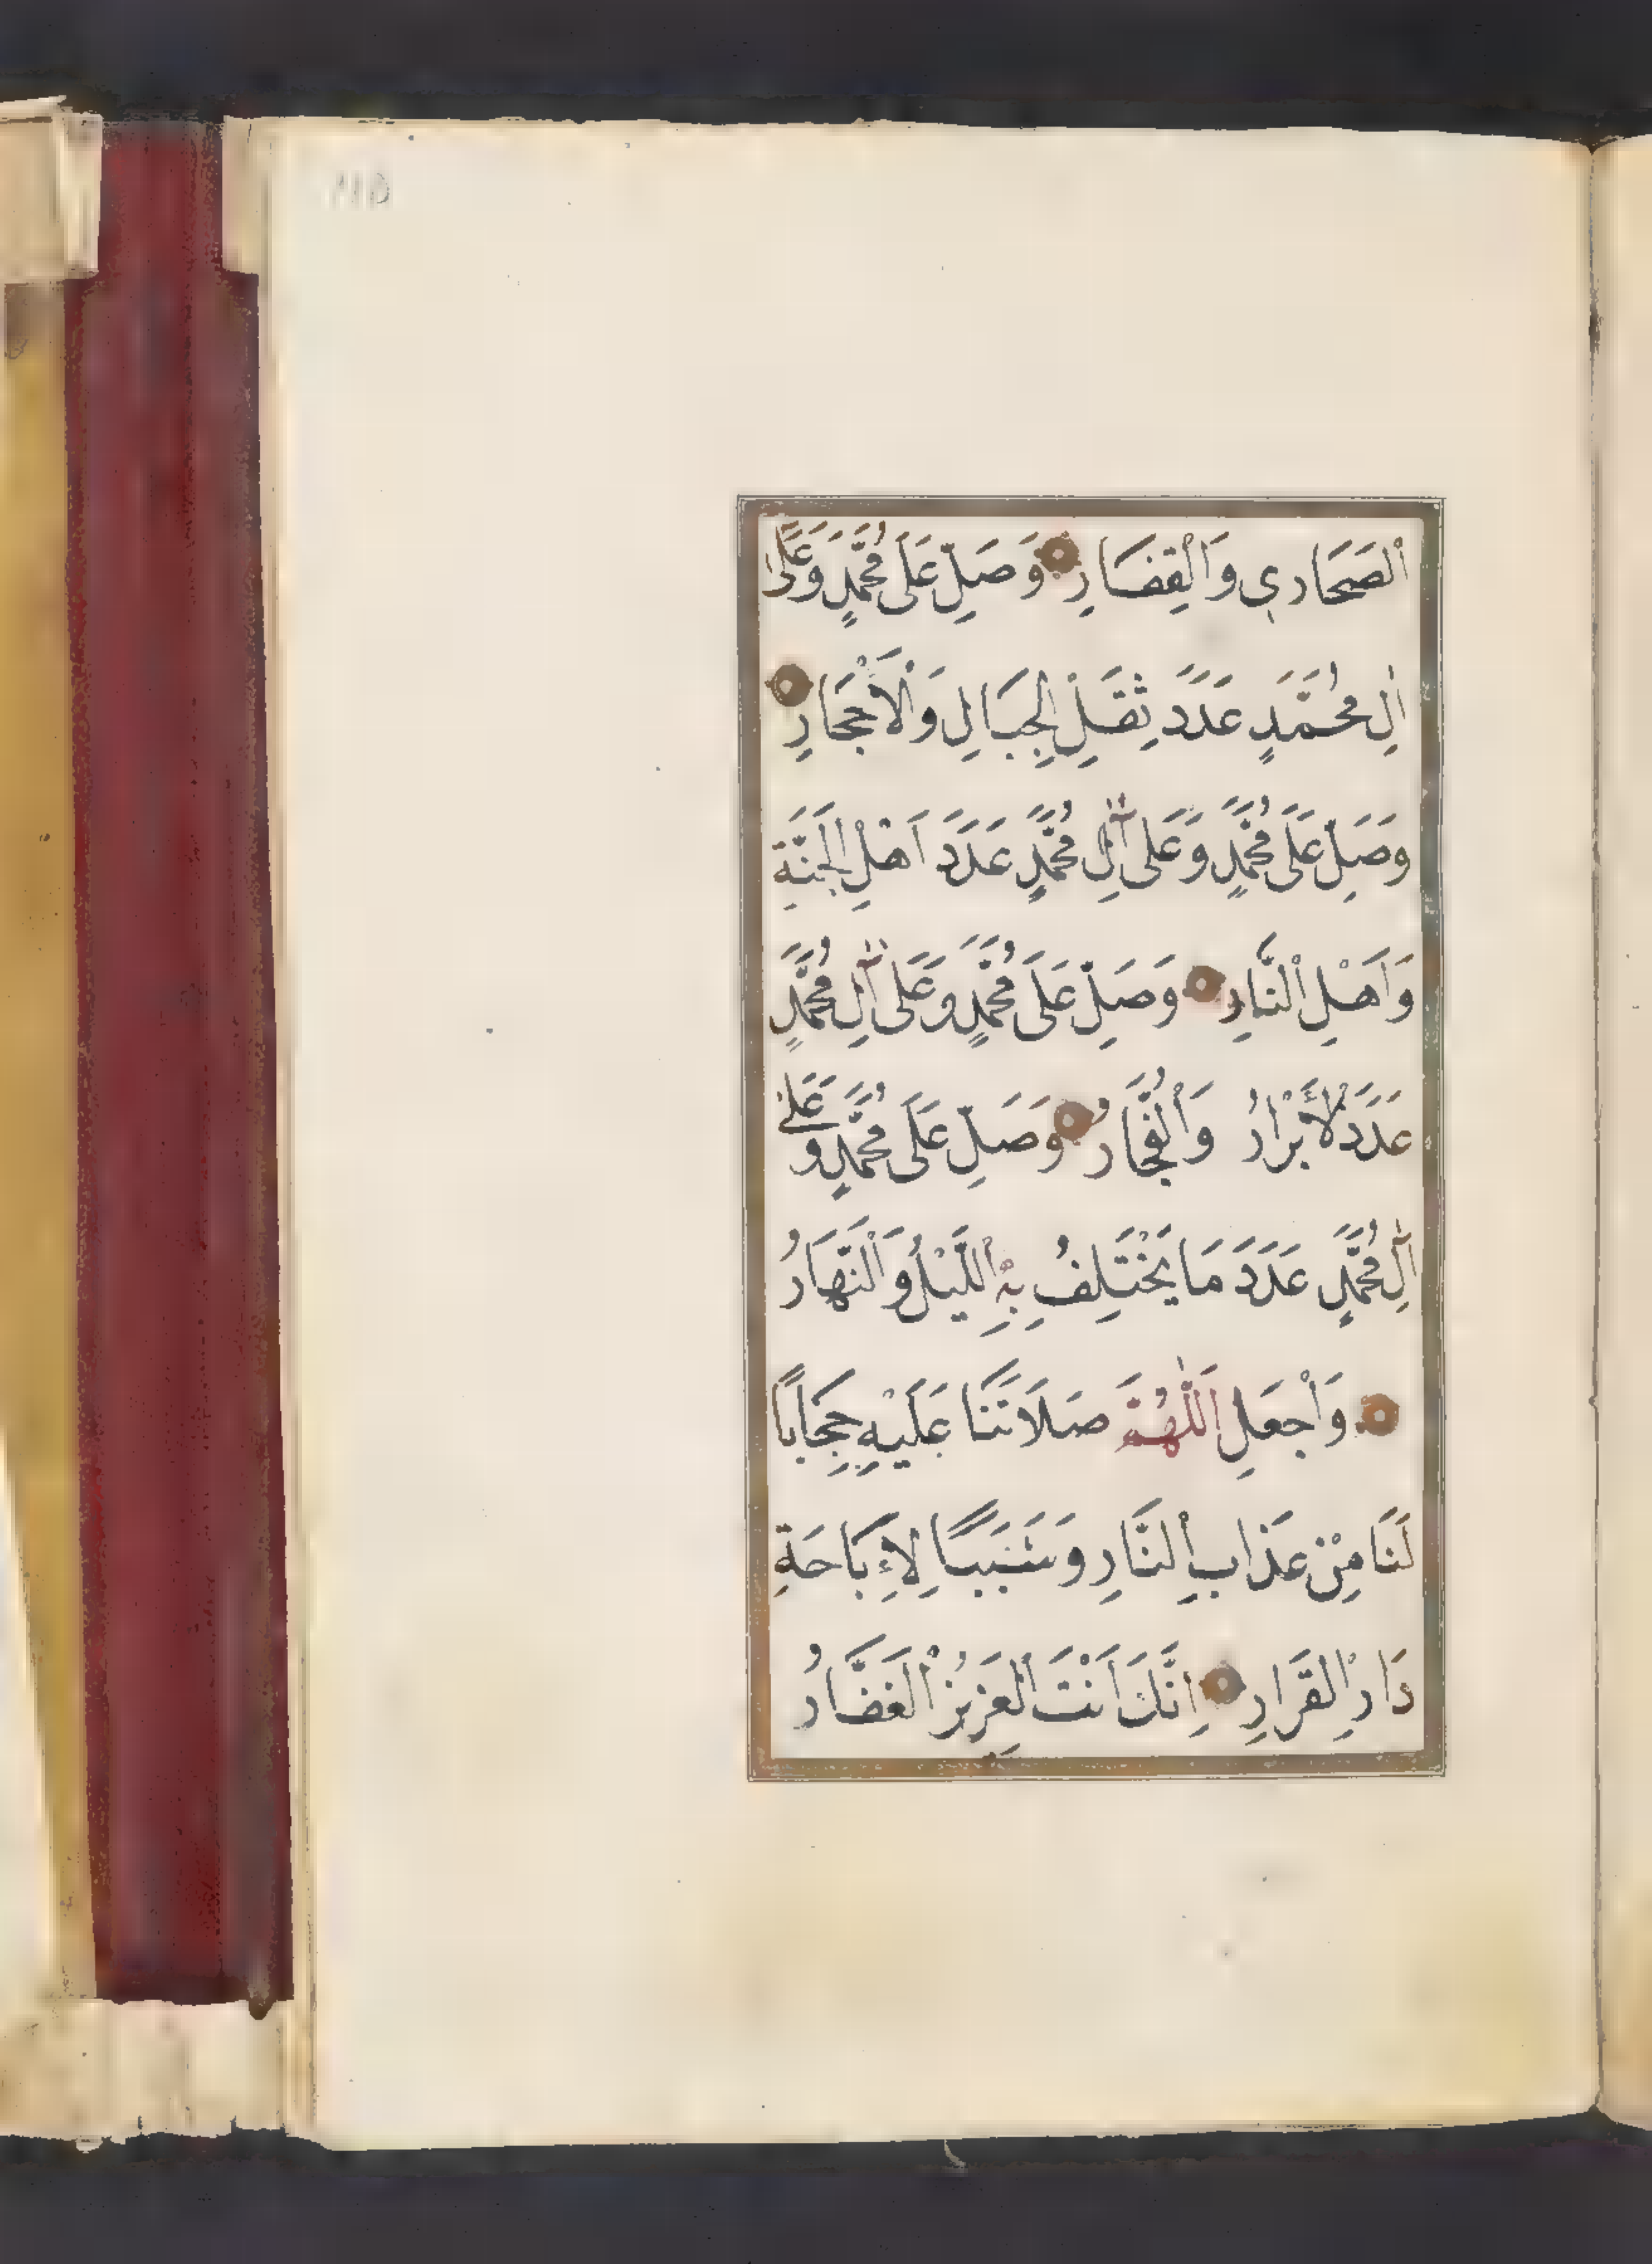 اْلصَحَارِي وَاْلقِفَارِ وَصَلِّ عَلَى مُحَمَّدٍ وَعَلٰى
اٰلِ مُحَمَّدٍ عَدَدَ ثِقَلِ اْلجِبَالِ وَاْلاَحْجَارِ
وَصَلِّ عَلَى مُحَمَّدٍ وَعَلَى اٰلِ مُحَمَّدٍ عَدَدَ اَهْلِ الْجَنَّةِ
وَاَهْلِ اْلنَّارِ وَصَلِّ عَلَى مُحَمَّدٍ وَعَلَى اٰلِ مُحَمَّدٍ
عَدَدَ لْأَبْرَارُ وَاْلفُجَّارُ وَصَلِّ عَلَى مُحَمَّدٍ وَعَلٰى
اٰلِ مُحَمَّدٍ عَدَدَ مَا يَخْتَلِفُ بِهِ اْللَّيْلُ وَاْلنَّهَارُ
وَاْجْعَلِ اَللّٰهُمَّ صَلَاتَنَا عَلَيْهِ حِجَابًا
لَنَا مِنْ عَذَابِ اْلنَّارِ وَسَبَبًا لِاِبَاحَةِ
دَارِ اْلقَرَارِ اِنَّكَ اَنْتَ اْلعَزِيزُ اْلغَفَّارُ